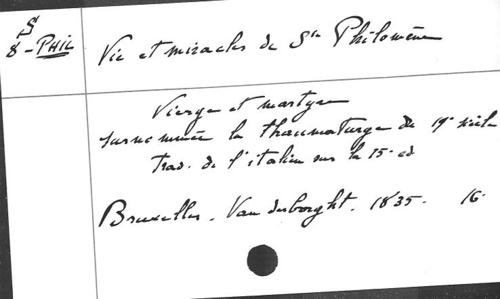 S
8-PHIL
Vie et miracles de Ste Philomène
Vierge et martyre
surnommée la thaumaturge du 19e siècle
trad. de l'italien sur la 15e ed
Bruxelles. Vanderborght. 1835. 16